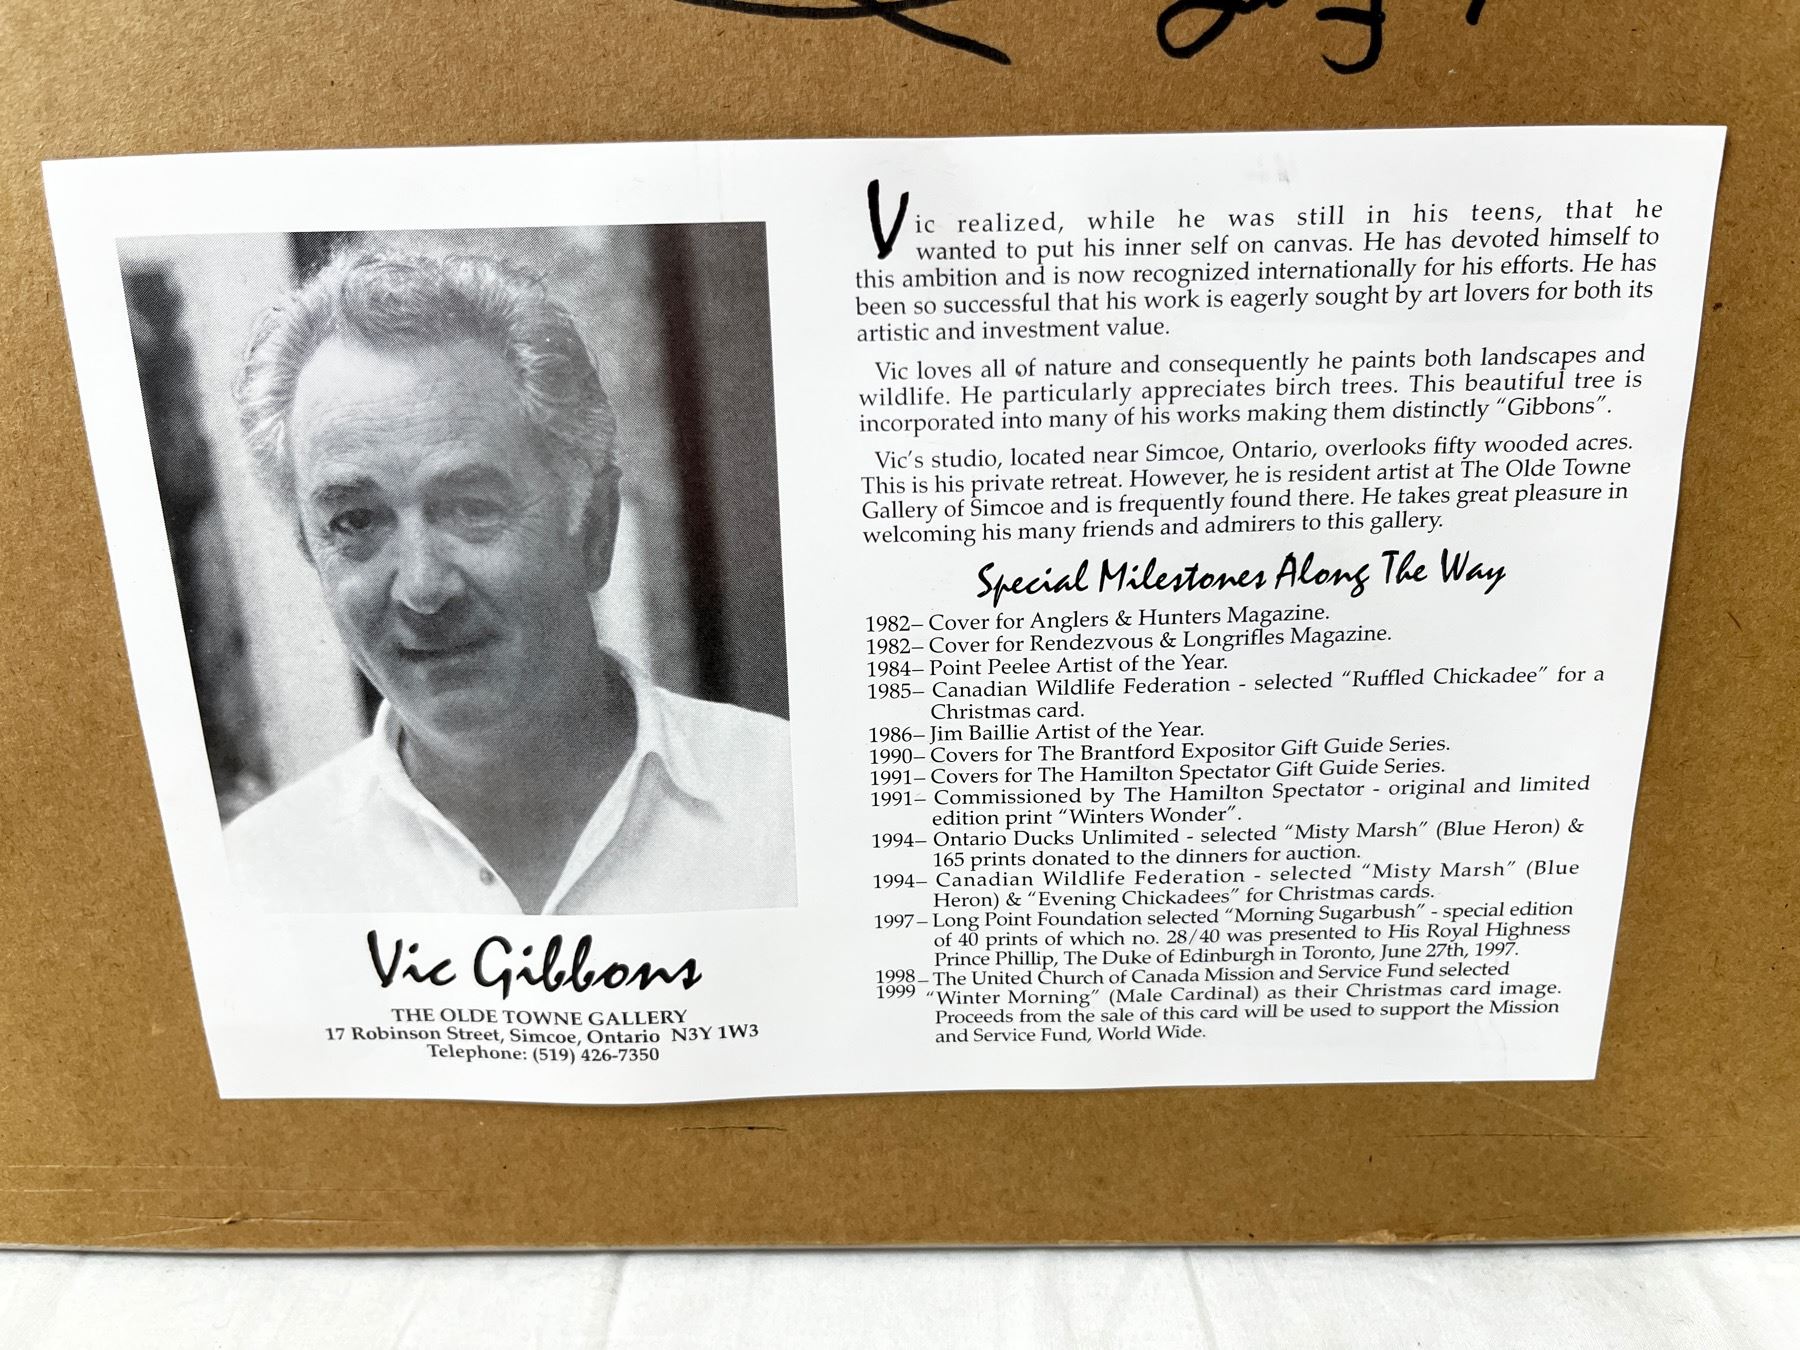 Vic realized, while he was still in his teens, that he
wanted to put his inner self on canvas. He has devoted himself to
this ambition and is now recognized internationally for his efforts. He has
been so successful that his work is eagerly sought by art lovers for both its
artistic and investment value.
Vic loves all of nature and consequently he paints both landscapes and
wildlife. He particularly appreciates birch trees. This beautiful tree is
incorporated into many of his works making them distinctly “Gibbons”.
Vic’s studio, located near Simcoe, Ontario, overlooks fifty wooded acres.
This is his private retreat. However, he is resident artist at The Olde Towne
Gallery of Simcoe and is frequently found there. He takes great pleasure in
welcoming his many friends and admirers to this gallery.
Special Milestones Along The Way
1982– Cover for Anglers & Hunters Magazine.
1982– Cover for Rendezvous & Longrifles Magazine.
1984– Point Peelee Artist of the Year.
1985– Canadian Wildlife Federation - selected “Ruffled Chickadee” for a
Christmas card.
1986– Jim Baillie Artist of the Year.
1990– Covers for The Brantford Expositor Gift Guide Series.
1991– Covers for The Hamilton Spectator Gift Guide Series.
1991– Commissioned by The Hamilton Spectator - original and limited
edition print “Winters Wonder”.
1994– Ontario Ducks Unlimited - selected “Misty Marsh” (Blue Heron) &
165 prints donated to the dinners for auction.
1994– Canadian Wildlife Federation - selected “Misty Marsh” (Blue
Heron) & “Evening Chickadees” for Christmas cards.
1997– Long Point Foundation selected “Morning Sugarbush” - special edition
of 40 prints of which no. 28/40 was presented to His Royal Highness
Prince Phillip, The Duke of Edinburgh in Toronto, June 27th, 1997.
1998– The United Church of Canada Mission and Service Fund selected
1999 “Winter Morning” (Male Cardinal) as their Christmas card image.
Proceeds from the sale of this card will be used to support the Mission
and Service Fund, World Wide.
Vic Gibbons
THE OLDE TOWNE GALLERY
17 Robinson Street, Simcoe, Ontario N3Y 1W3
Telephone: (519) 426-7350